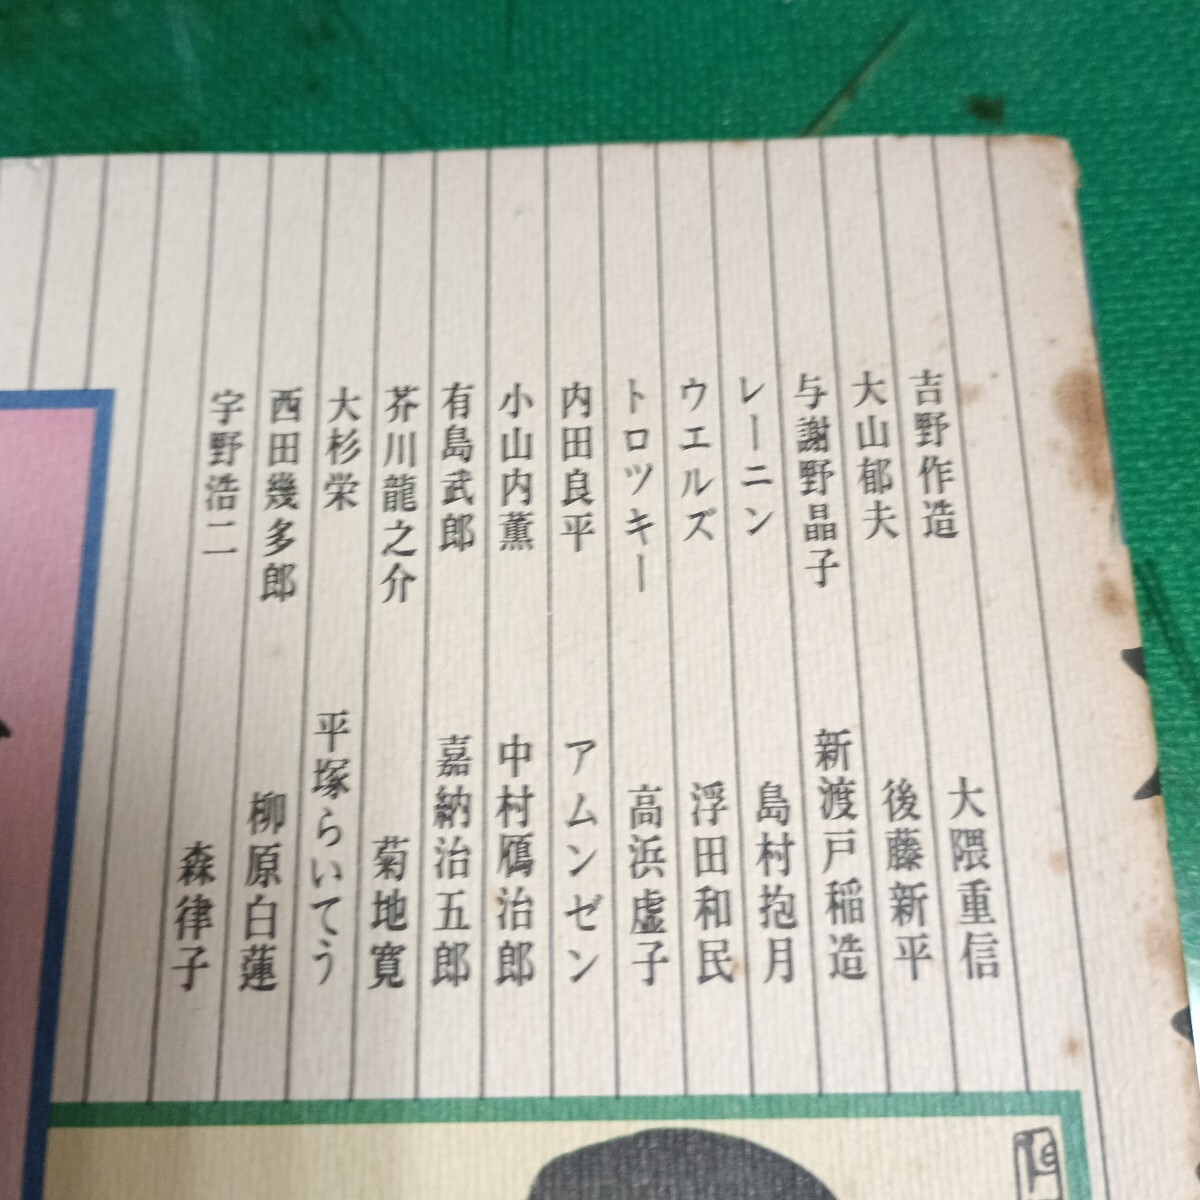 吉野作造
大山郁夫
与謝野晶子
レーニン
ウエルズ
トロツキー
内田良平
小山内薫
有島武郎
芥川龍之介
大杉栄
西田幾多郎
宇野浩二
大隈重信
後藤新平
新渡戸稲造
島村抱月
浮田和民
高浜虚子
アムンゼン
中村鴈治郎
嘉納治五郎
菊地寛
平塚らいてう
柳原白蓮
森律子